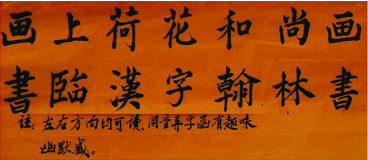 画上荷花和尚画
書臨漢字翰林書
註：左右方向均可讀、同音异字函有趣味
幽默感。